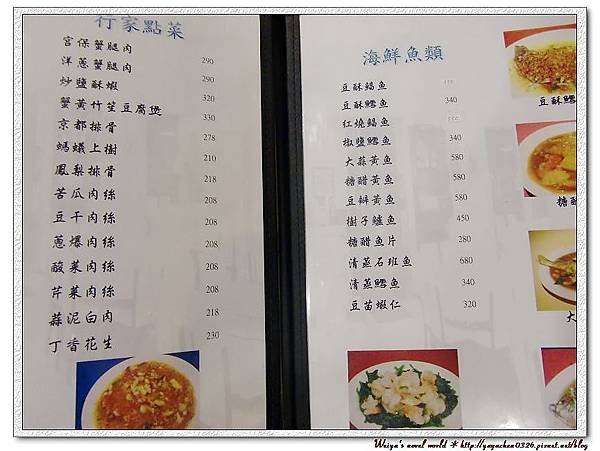 行家點菜
宮保蟹腿肉 290
洋蔥蟹腿肉 290
炒鹽酥蝦 320
蟹黃竹笙豆腐煲 330
京都排骨 278
螞蟻上樹 218
鳳梨排骨 218
苦瓜肉絲 208
豆干肉絲 208
蔥爆肉絲 208
酸菜肉絲 208
芹菜肉絲 208
蒜泥白肉 208
丁香花生 230
海鮮魚類
豆酥鯧魚
豆酥鱈魚 340
紅燒鯧魚
椒鹽鱈魚 340
大蒜黃魚 580
糖醋黃魚 580
豆瓣黃魚 580
樹子鱸魚 450
糖醋魚片 280
清蒸石班魚 680
清蒸鱈魚 340
豆苗蝦仁 320
豆酥鱈
糖醋
大
Weiya's novel world * http://yayachen0326.pixnet.net/blog